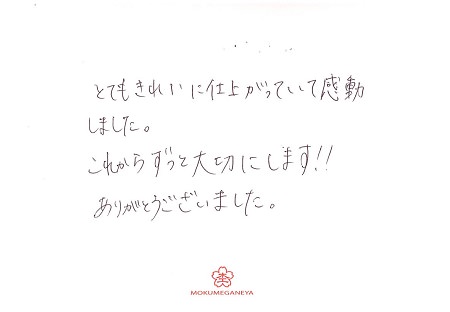 とてもきれいに仕上がっていて感動
しました。
これからずっと大切にします!!
ありがとうございました。
MOKUMEGANEYA